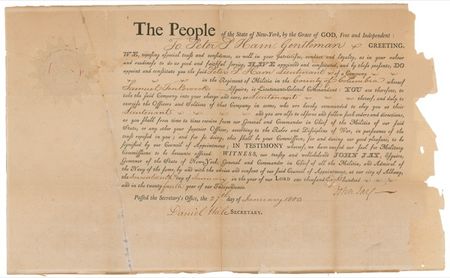 The People of the State of New-York, by the Grace of GOD, Free and Independent:
To Peter I Ham Gentleman GREETING.
WE, reposing especial trust and confidence, as well in your patriotism, conduct and loyalty, as in your valour
and readiness to do us good and faithful service; HAVE appointed and constituted, and by these presents, DO
appoint and constitute you the said Peter I Ham Lieutenant of a Company
Regiment of Militia in the County of Columbia whereof
Samuel Esquire, is Lieutenant-Colonel Commandant: YOU are therefore, to
take the said Company into your charge and care, as Lieutenant thereof, and duly to
exercise the Officers and Soldiers of that Company in arms, who are hereby commanded to obey you as their
Lieutenant and you are also to observe and follow such orders and directions,
as you shall from time to time receive from our General and Commander in Chief of the Militia of our said
State, or any other your Superior Officer, according to the Rules and Discipline of War, in pursuance of the
trust reposed in you; and for so doing, this shall be your Commission, for and during our good pleasure, to be
signified by our Council of Appointment. IN TESTIMONY whereof, we have caused our Seal for Military
Commissions to be hereunto affixed. WITNESS, our trusty and well-beloved JOHN JAY, Esquire,
Governor of the State of New-York, General and Commander in Chief of all the Militia, and Admiral of
the Navy of the same, by and with the advice and consent of our said Council of Appointment, at our city of Albany,
the day of in the year of our LORD one thousand Eight hundred
and in the twenty fourth year of our Independence.
John Jay
Passed the Secretary's Office, the 27th day of January 1800
Daniel Hale SECRETARY.